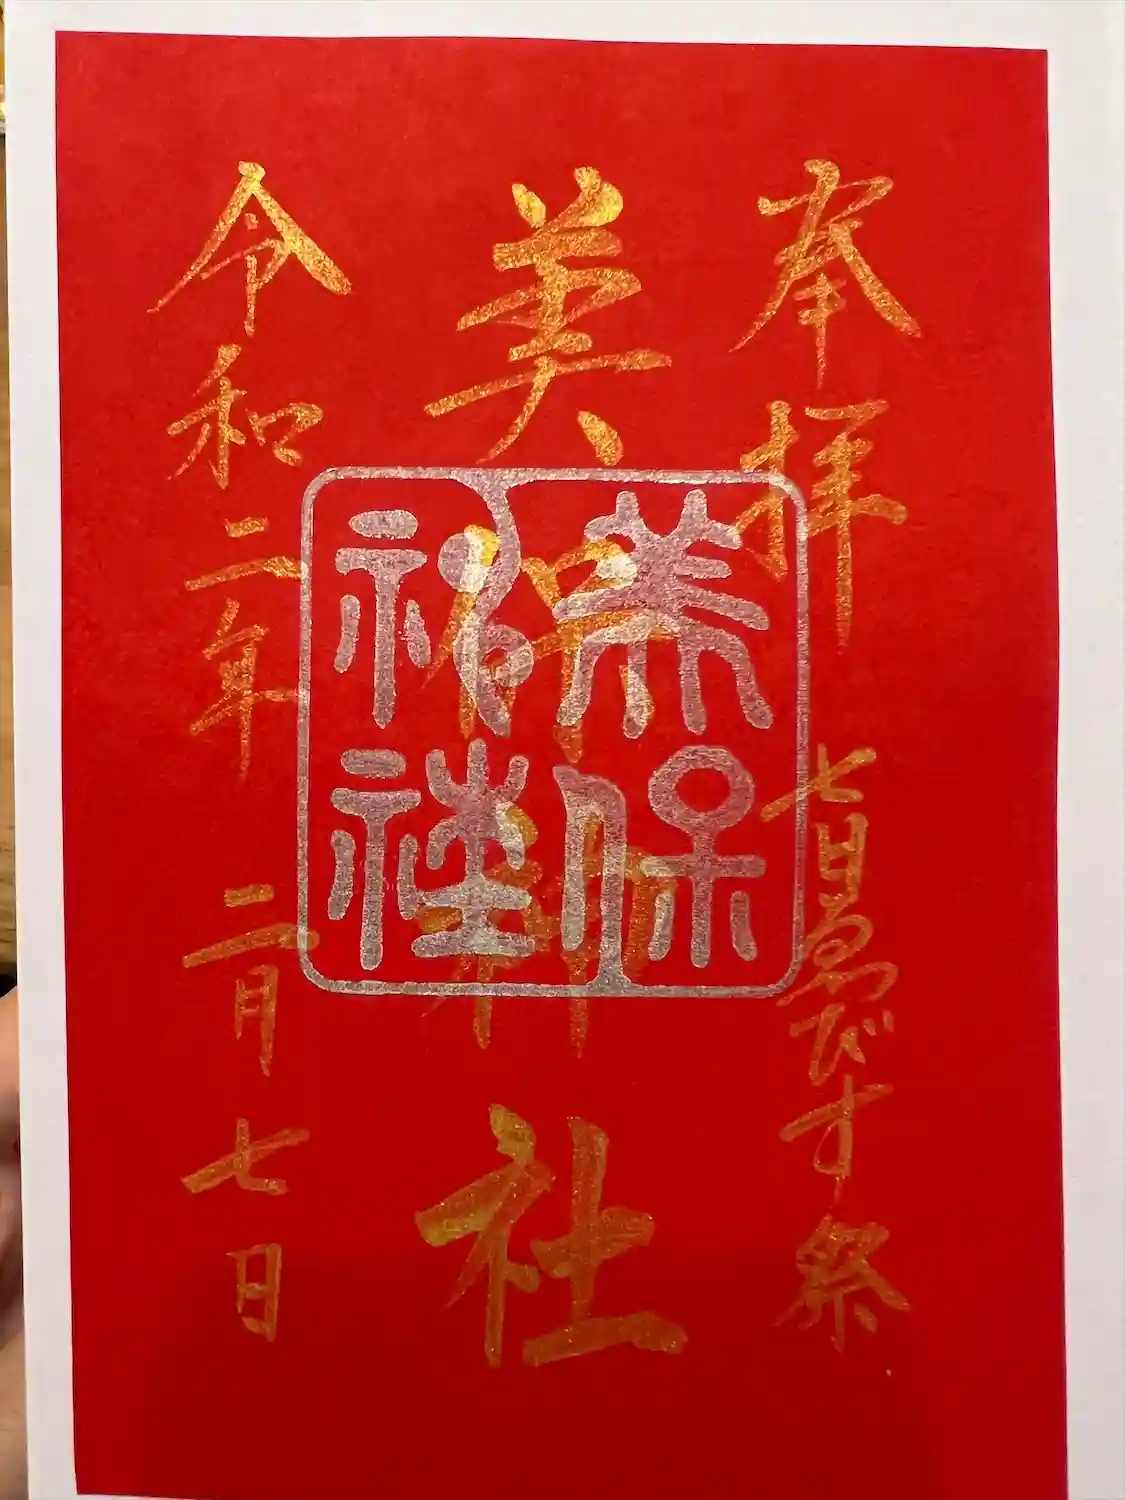 奉拝 七日ゑびす祭
美保神社
令和二年二月七日
美保
神社